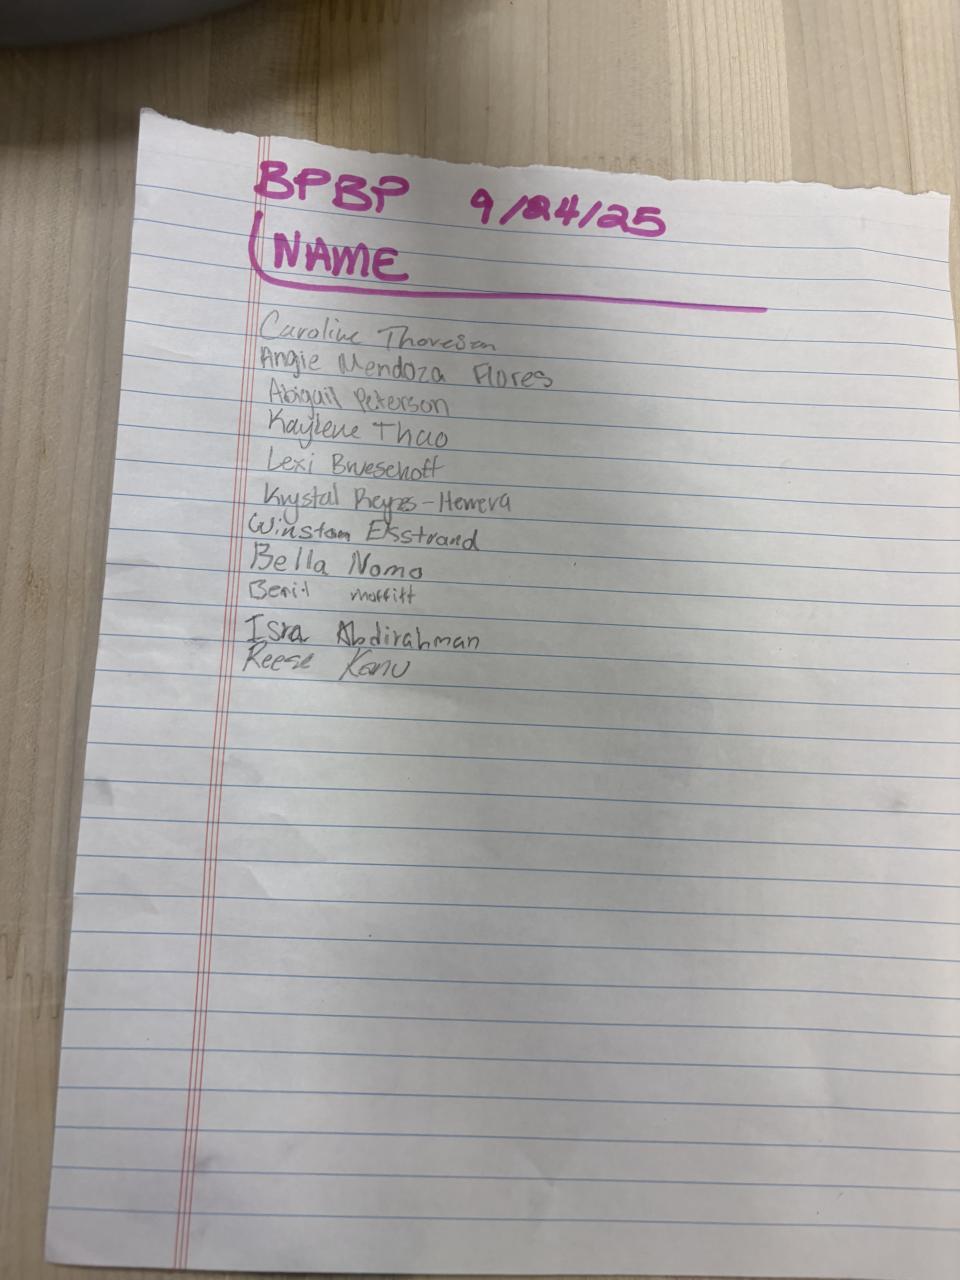 BPBP 9/24/25
NAME
Caroline Thoresen
Angie Mendoza Flores
Abigail Peterson
Kaylene Thao
Lexi Brueschoff
Krystal Reyes-Herrera
Winston Ekstrand
Bella Nomo
Berit Moffitt
Isra Abdirahman
Reese Kanu